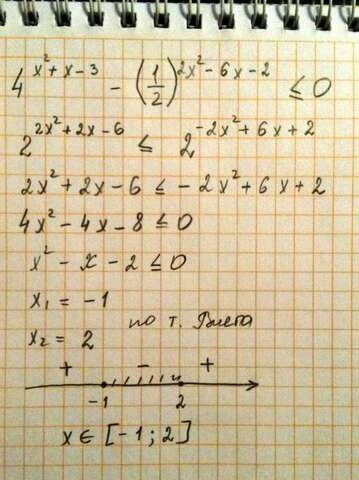 4^(x²+x-3) - (1/2)^(2x²-6x-2) ≤ 0
2^(2x²+2x-6) ≤ 2^(-2x²+6x+2)
2x²+2x-6 ≤ -2x²+6x+2
4x²-4x-8 ≤ 0
x²-x-2 ≤ 0
x₁ = -1
по т. Виета
x₂ = 2
+ - +
-1 2
x ∈ [-1; 2]